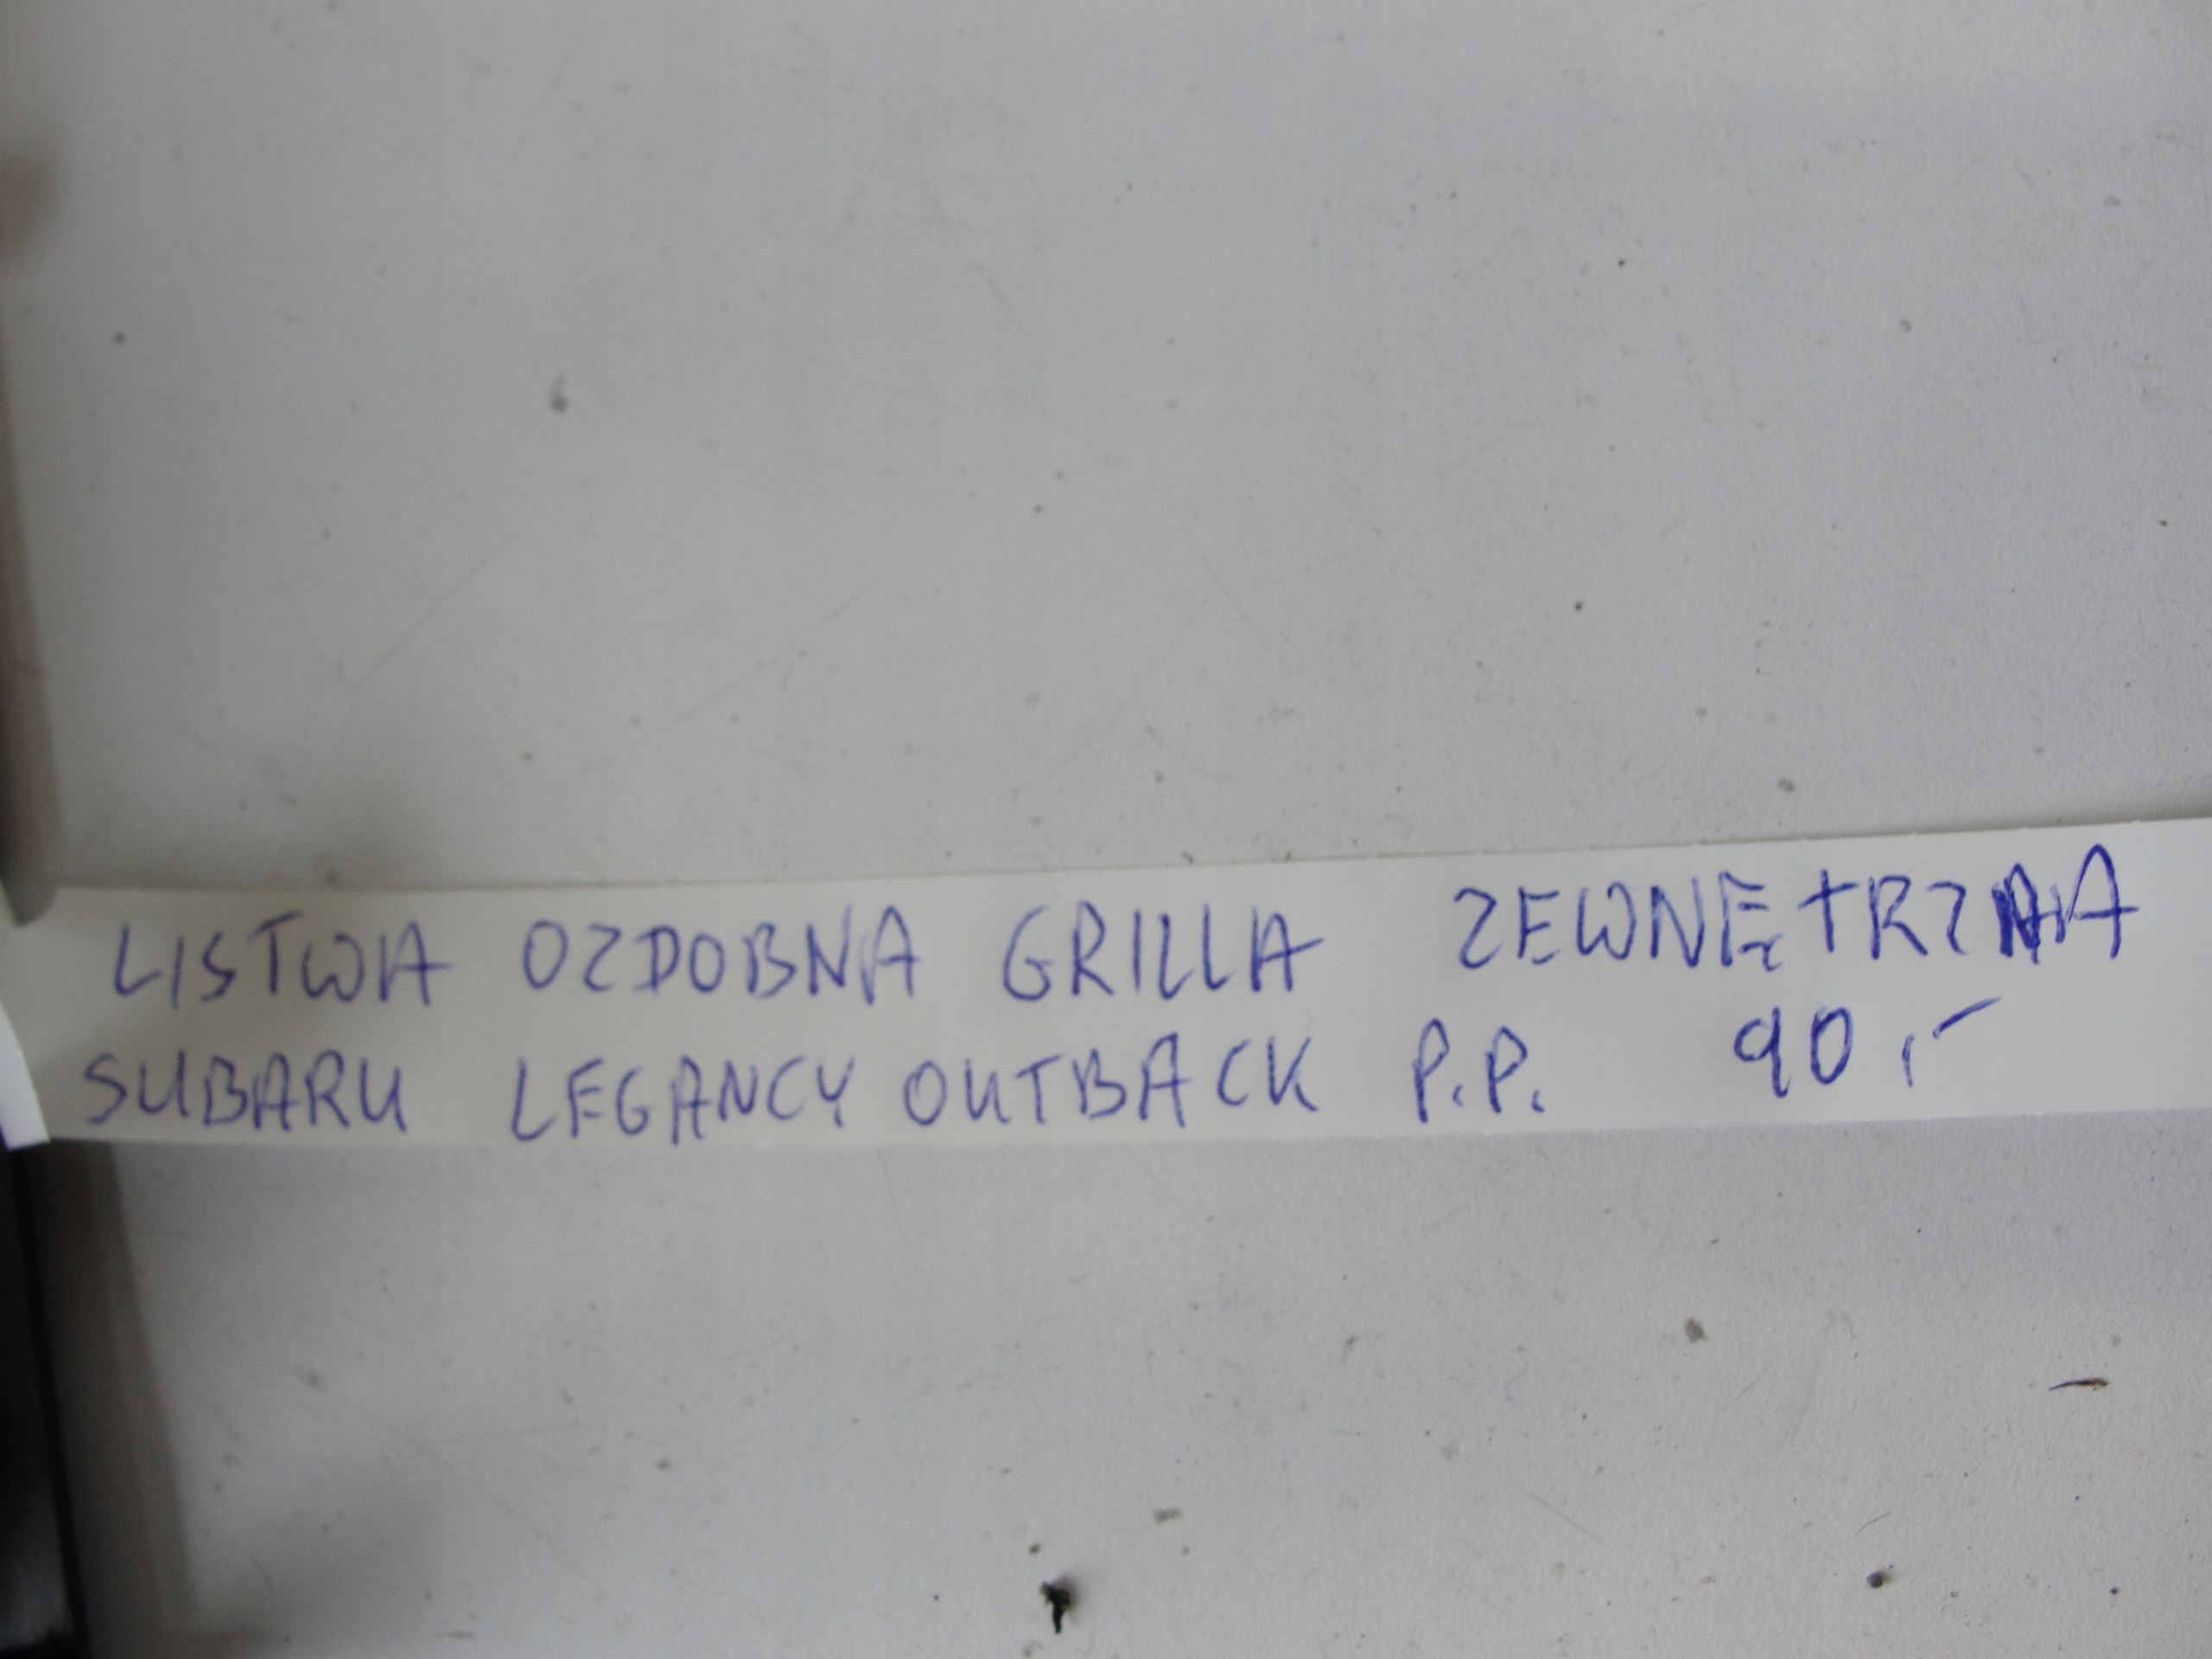 LISTWA OZDOBNA GRILLA ZEWNĘTRZNA
SUBARU LEGANCY OUTBACK P.P. 90,-